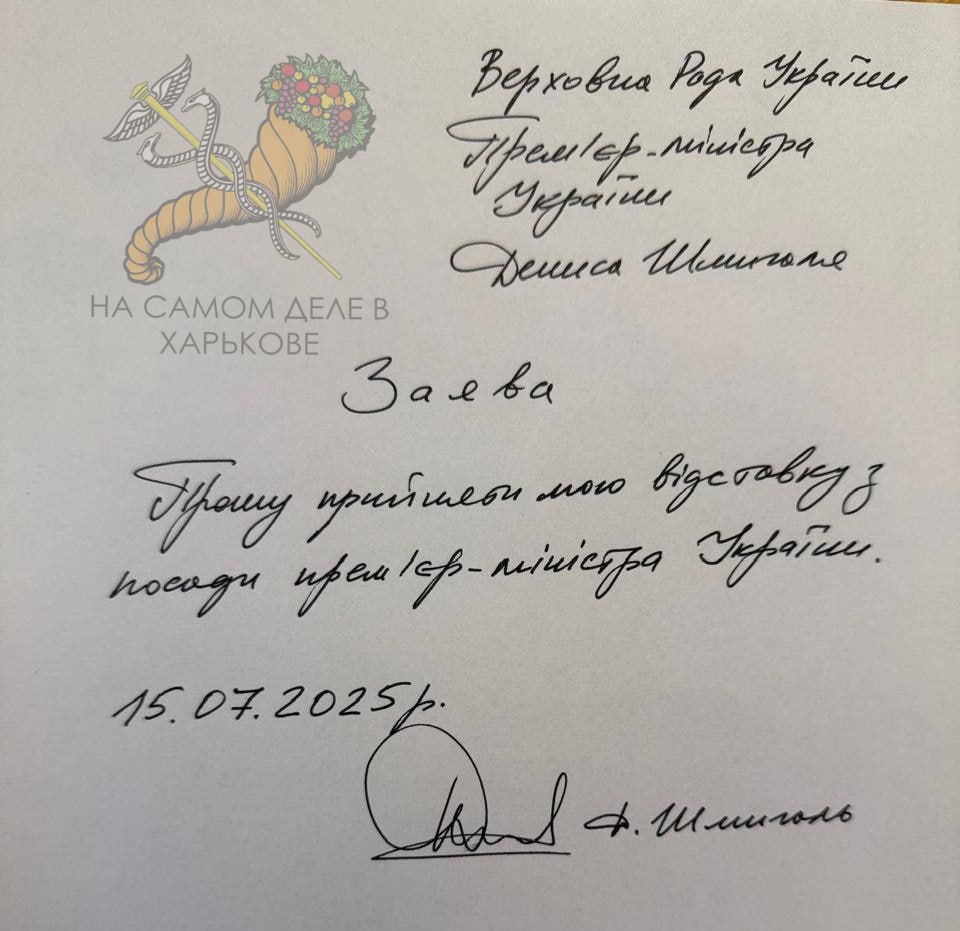 Верховна Рада України
Прем'єр-міністра
України
Дениса Шмигаля
НА САМОМ ДЕЛЕ В
ХАРЬКОВЕ
Заява
Прошу прийняти мою відставку з
посади прем'єр-міністра України.
15.07.2025р.
Д. Шмигаль